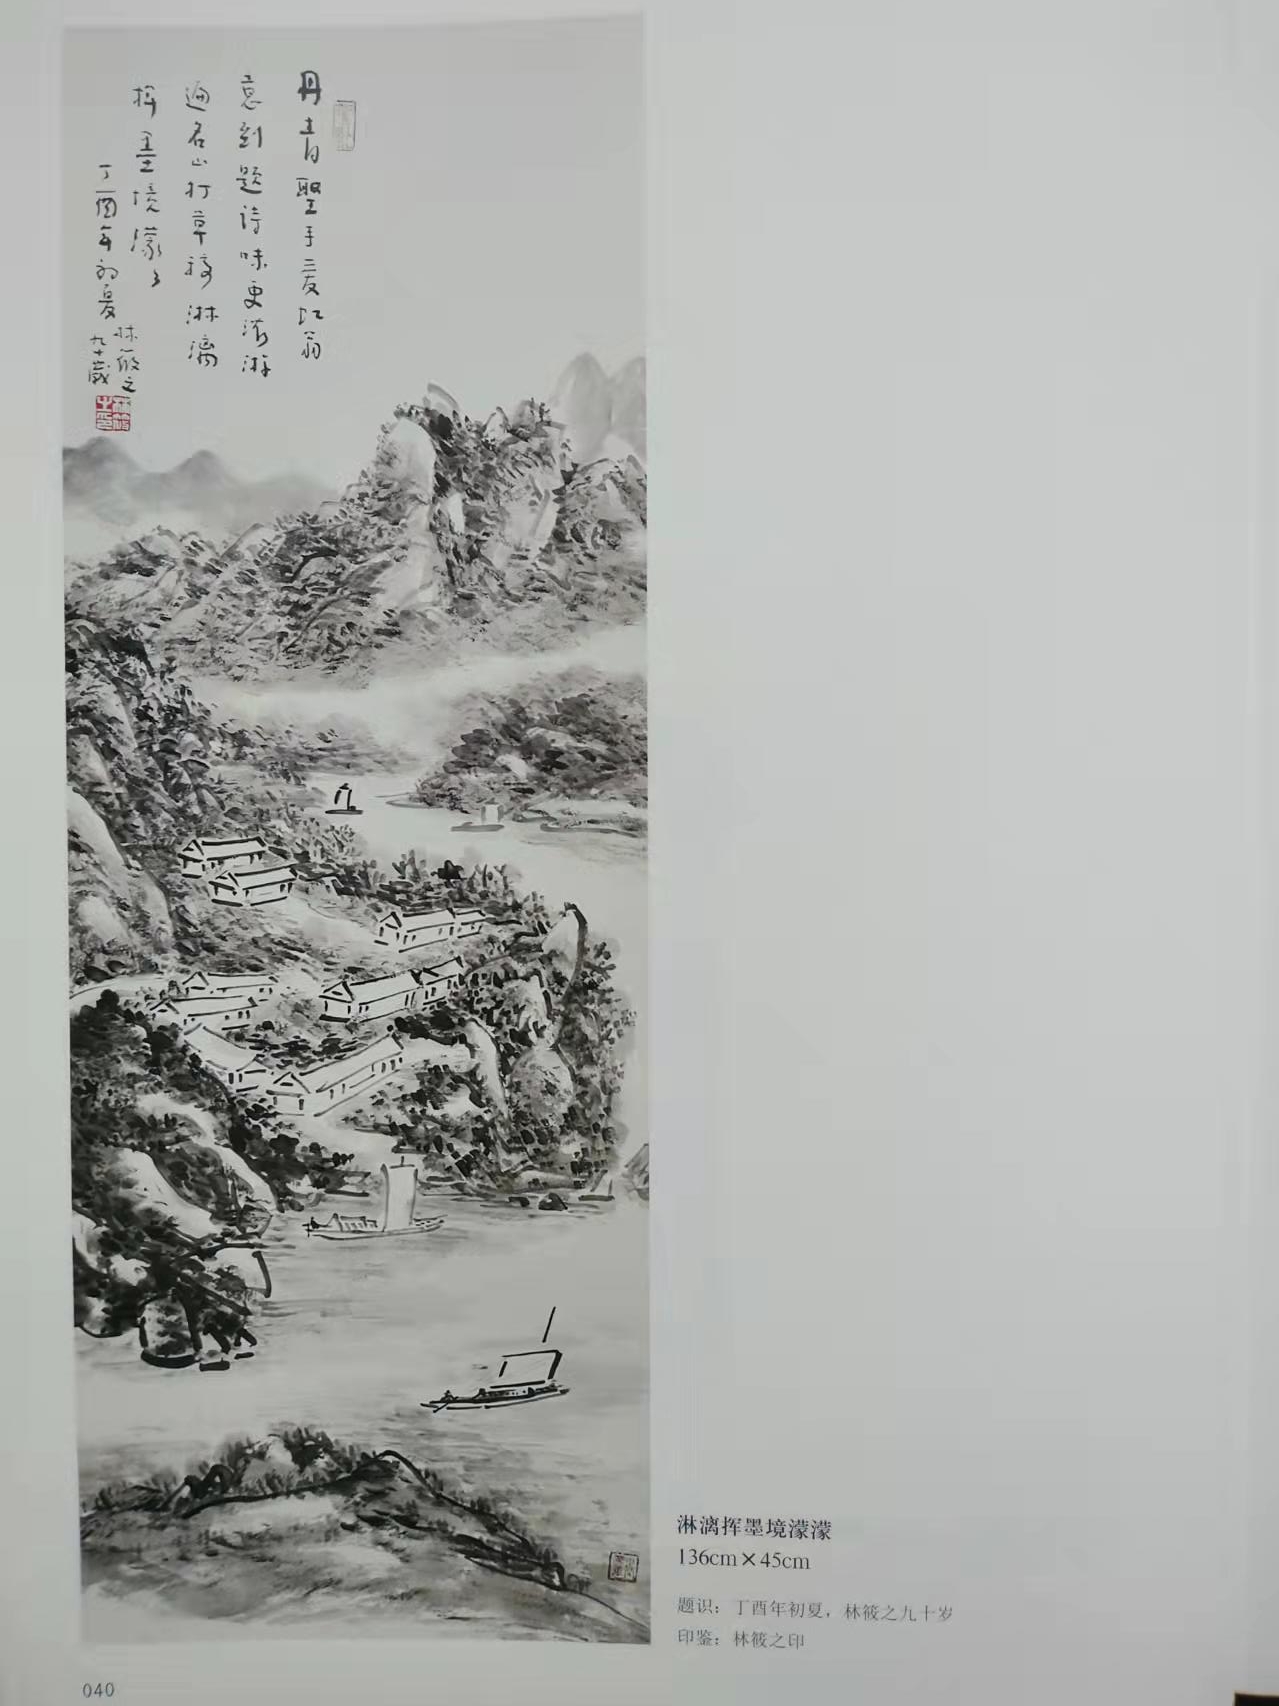 丹青聖手爰虹翁
意到題诗味更浓游
遍名山打草稿淋漓
挥墨境濛々
丁酉年初夏
林筱之
九十歲
淋漓挥墨境濛濛
136cm×45cm
题识：丁酉年初夏，林筱之九十岁
印鉴：林筱之印
040